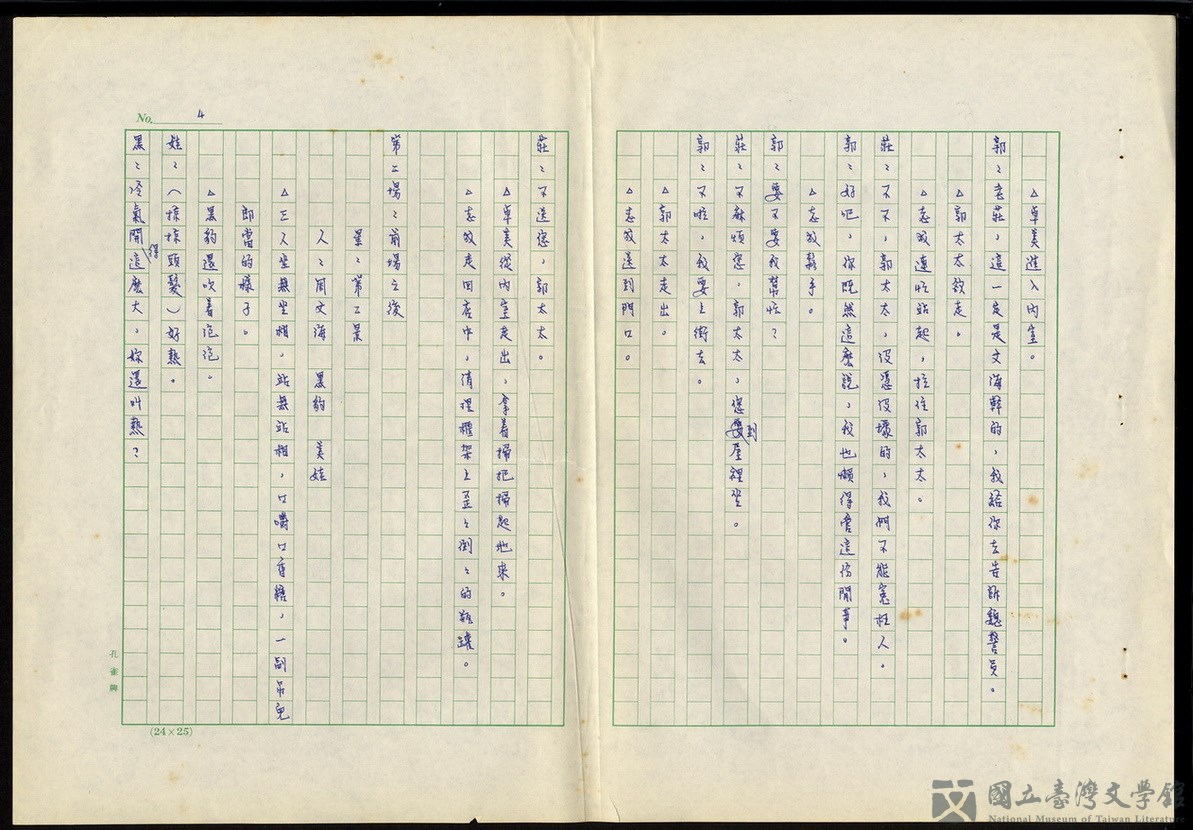 △卓美進入內室。
郭：老莊，這一定是文海幹的，我給你去告訴魏警員。
△郭太太欲走。
△志成連忙站起，拉住郭太太。
莊：不不，郭太太，沒憑沒據的，我們不能冤枉人。
郭：好吧，你既然這麼說，我也懶得管這份閒事。
△志成鬆手。
郭：要不要我幫忙？
莊：不麻煩您，郭太太，您到屋裡坐。
郭：不啦，我要上街去。
△郭太太走出。
△志成送到門口。
No. 4
莊：不送您，郭太太。
△卓美從內室走出，拿着掃把掃起地來。
△志成走回店中，清理櫃架上歪歪倒倒的瓶罐。
第二場：前場之後
景：第二景
人：周文海 黑豹 美娃
△三人坐無坐相，站無站相，口嚼口香糖，一副吊兒
郎當的樣子。
△黑豹還吹着泡泡。
娃：（掠掠頭髮）好熱。
黑：冷氣開得這麼大，妳還叫熱？
孔雀牌
(24×25)
國立臺灣文學館
National Museum of Taiwan Literature